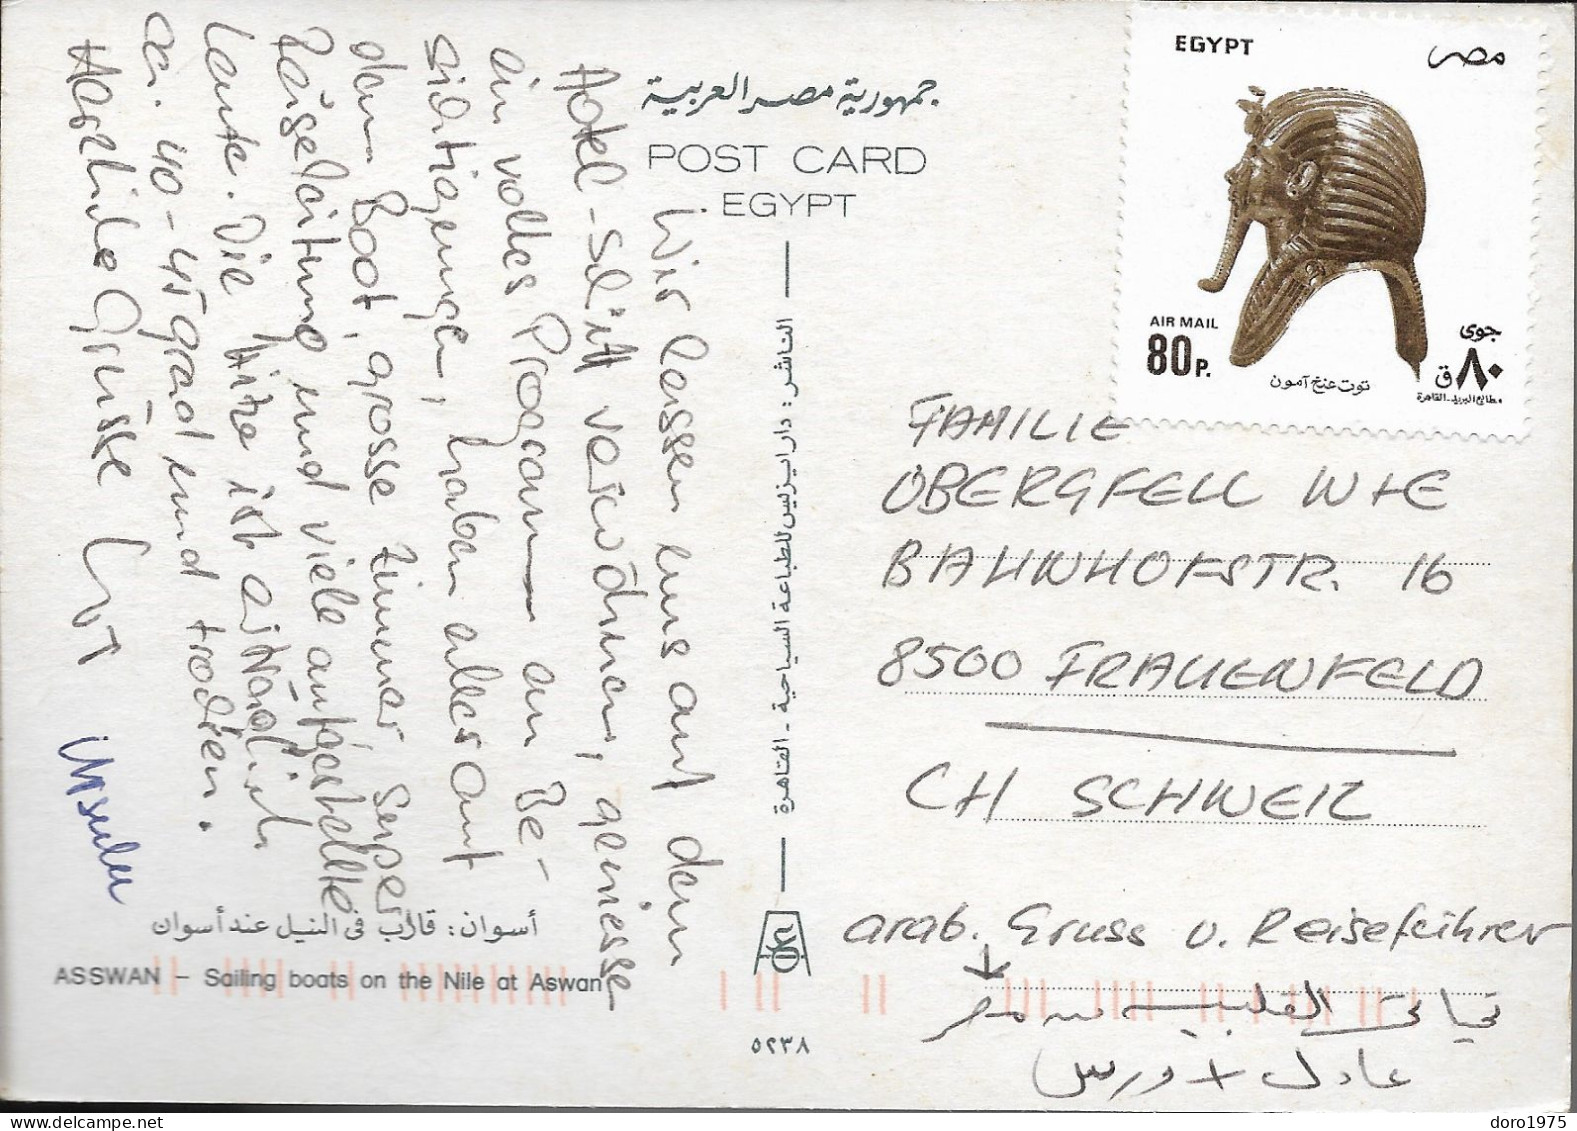 جمهورية مصر العربية
POST CARD
EGYPT
EGYPT
مصر
AIR MAIL
80 P.
جوى
٨٠ ق
توت عنخ آمون
مطابع البريد - القاهرة
Wir lassen uns auf dem
Hotel-Schiff verwöhnen, geniesse
ein volles Programm an Be-
sichtigungen, haben alles auf
dem Boot, grosse Zimmer, super
Reiseleitung und viele aufgestellte
Leute. Die Hitze ist erträglich
ca. 40-45 grad und trocken.
Herzliche Grüsse
Ursula
الناشر: دار ايزيس للطباعة السياحية - القاهرة
FAMILIE
OBERGFELL
BAHNHOFSTR. 16
8500 FRAUENFELD
CH SCHWEIZ
arab. Gruss v. Reiseführer
تحياتى القلبية من مصر
عادل +
أسوان: قارب فى النيل عند أسوان
ASSWAN – Sailing boats on the Nile at Aswan
٥٢٣٨
doro1975